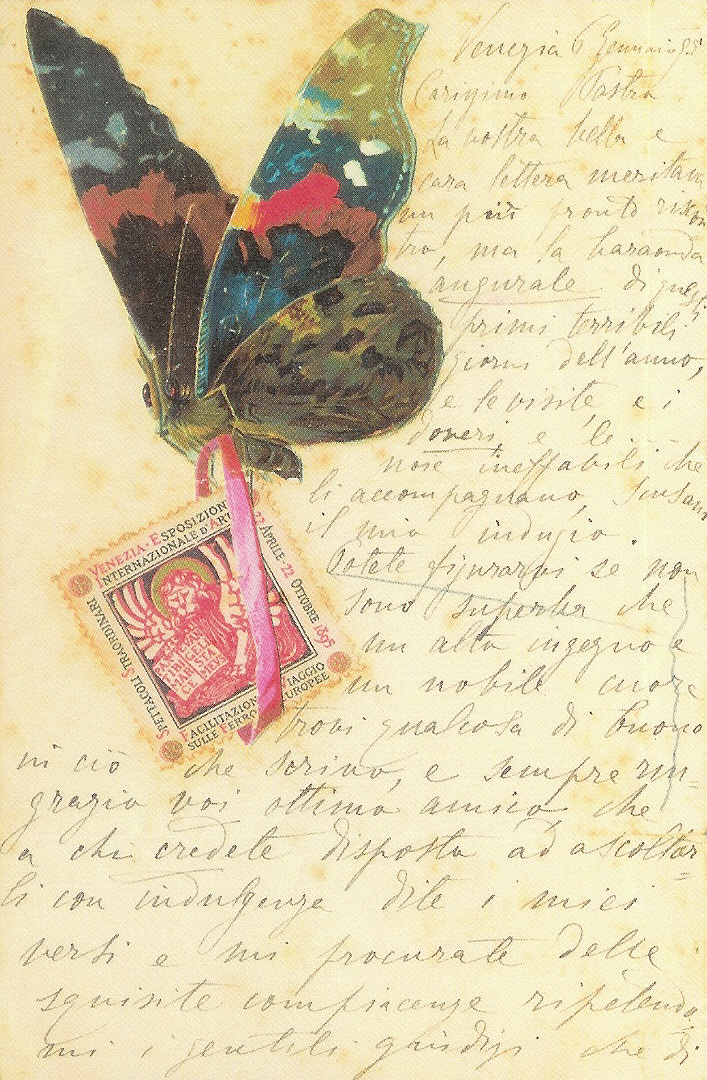 Venezia 6 Gennaio 95
Carissimo Pastro
La vostra bella e
cara lettera meritava
un più pronto riscon
tro, ma la baraonda
augurale di quegli
primi terribili
giorni dell'anno,
e le visite, e i
doveri, e le
noie ineffabili che
li accompagnano, scusano
il mio indugio.
Potete figurarvi se non
sono superba che
un alto ingegno e
un nobile cuore
trovi qualcosa di buono
in ciò che scrivo, e sempre rin-
grazio voi ottimo amico, che
a chi credete disposto ad ascoltar-
li con indulgenza dite i miei
versi e mi procurate delle
squisite compiacenze ripetendo
mi i gentili giudizi che di
VENEZIA ESPOSIZION
INTERNAZIONALE D'AR
22 APRILE-22 OTTOBRE 1895
SPETTACOLI STRAORDINARI
FACILITAZION VIAGGIO
SULLE FERRO EUROPEE